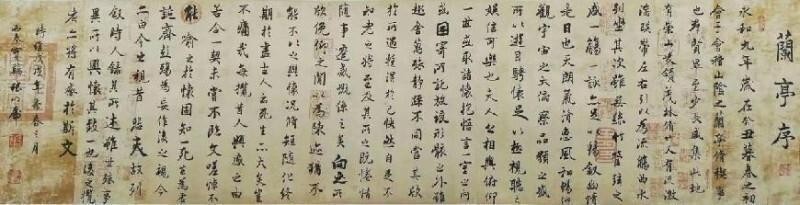 蘭亭序
永和九年歲在癸丑暮春之初
會于會稽山陰之蘭亭脩禊事
也羣賢畢至少長咸集此地
有崇山峻領茂林脩竹又有清流激
湍暎帶左右引以為流觴曲水
列坐其次雖無絲竹管弦之
盛一觴一詠亦足以暢敘幽情
是日也天朗氣清惠風和暢仰
觀宇宙之大俯察品類之盛
所以遊目騁懷足以極視聽之
娛信可樂也夫人之相與俯仰
一世或取諸懷抱悟言一室之內
或因寄所託放浪形骸之外雖
趣舍萬殊靜躁不同當其欣
於所遇暫得於己快然自足不
知老之將至及其所之既惓情
隨事遷感慨係之矣向之所
欣俛仰之間以為陳迹猶不
能不以之興懷況脩短隨化終
期於盡古人云死生亦大矣豈
不痛哉每攬昔人興感之由
若合一契未嘗不臨文嗟悼不
能喻之於懷固知一死生為虛
誕齊彭殤為妄作後之視今
亦由今之視昔悲夫故列
敘時人錄其所述雖世殊事
異所以興懷其致一也後之攬
者亦將有感於斯文
年暮春之月